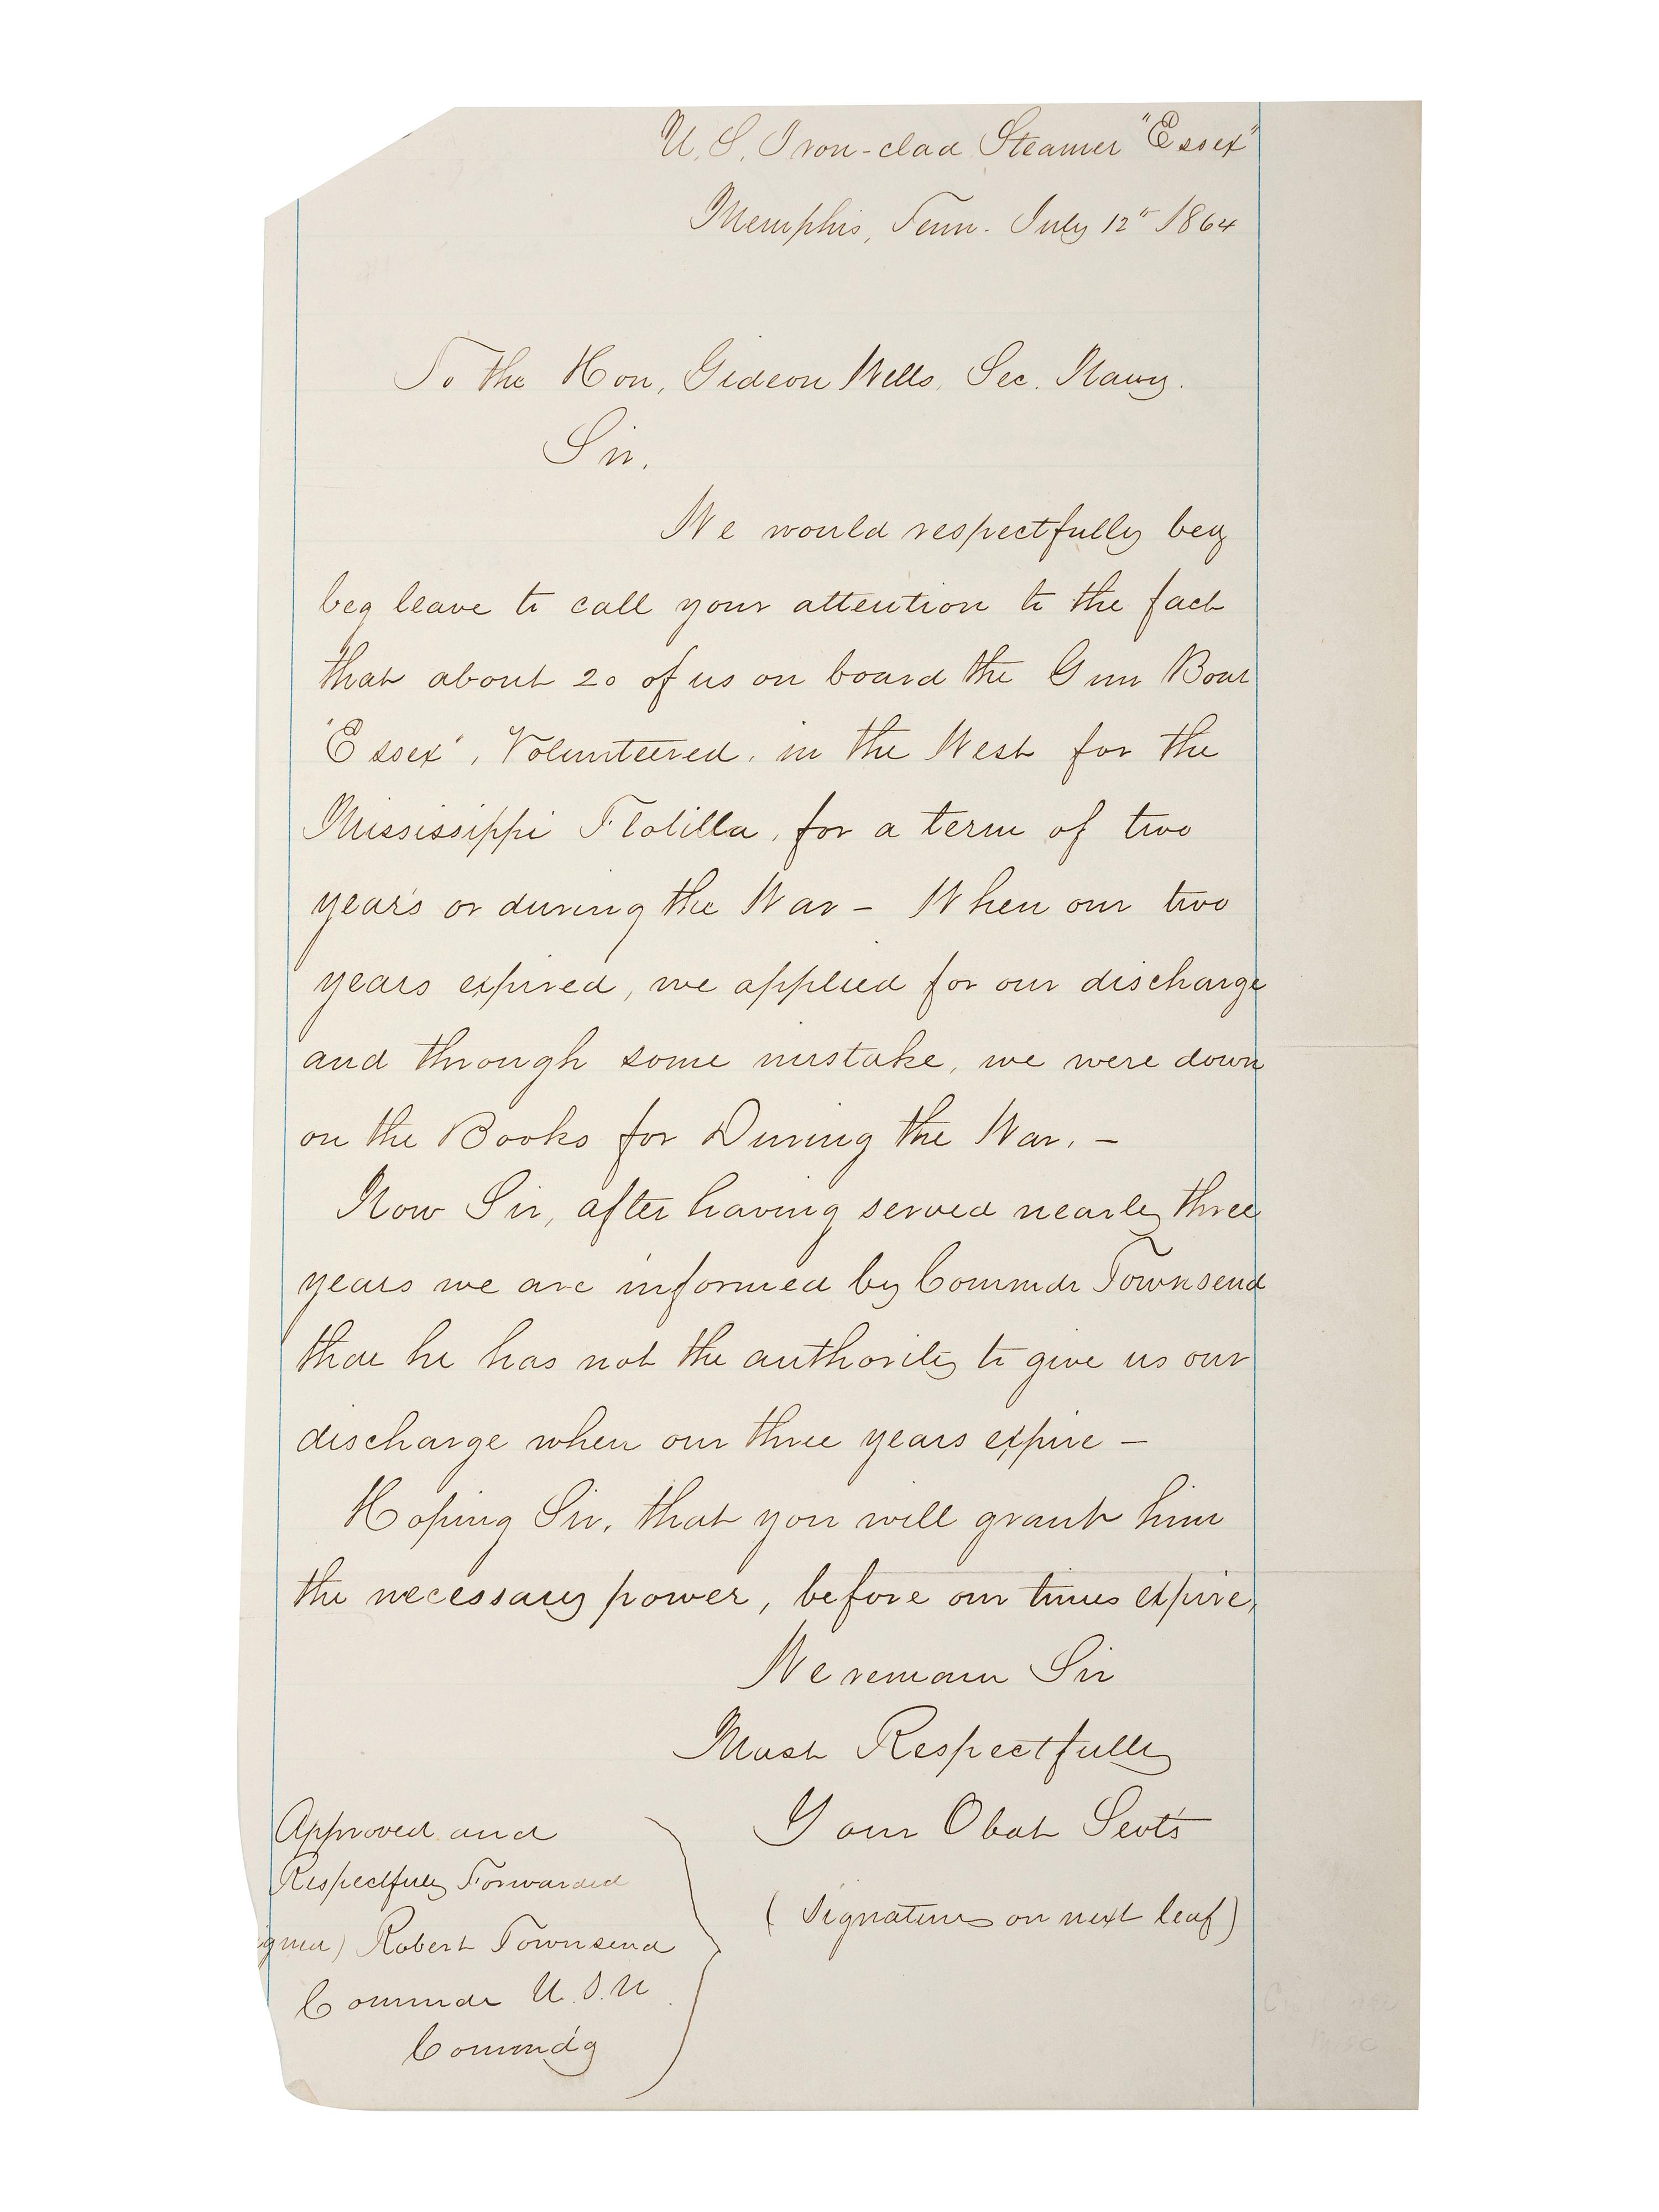 U. S. Iron-clad Steamer "Essex"
Memphis, Tenn. July 12th 1864
To the Hon, Gideon Wells, Sec. Navy.
Sir,
We would respectfully beg
beg leave to call your attention to the fact
that about 20 of us on board the Gun Boat
"Essex", Volunteered, in the West for the
Mississippi Flotilla, for a term of two
year's or during the War – When our two
years expired, we applied for our discharge
and through some mistake, we were down
on the Books for During the War. –
Now Sir, after having served nearly three
years we are informed by Commdr Townsend
that he has not the authority to give us our
discharge when our three years expire –
Hoping Sir, that you will grant him
the necessary power, before our times expire,
We remain Sir
Most Respectfully
Your Obdt Servt's
(Signatures on next leaf)
Approved and
Respectfully Forwarded
igned) Robert Townsend
Commdr U.S.N.
Commd'g